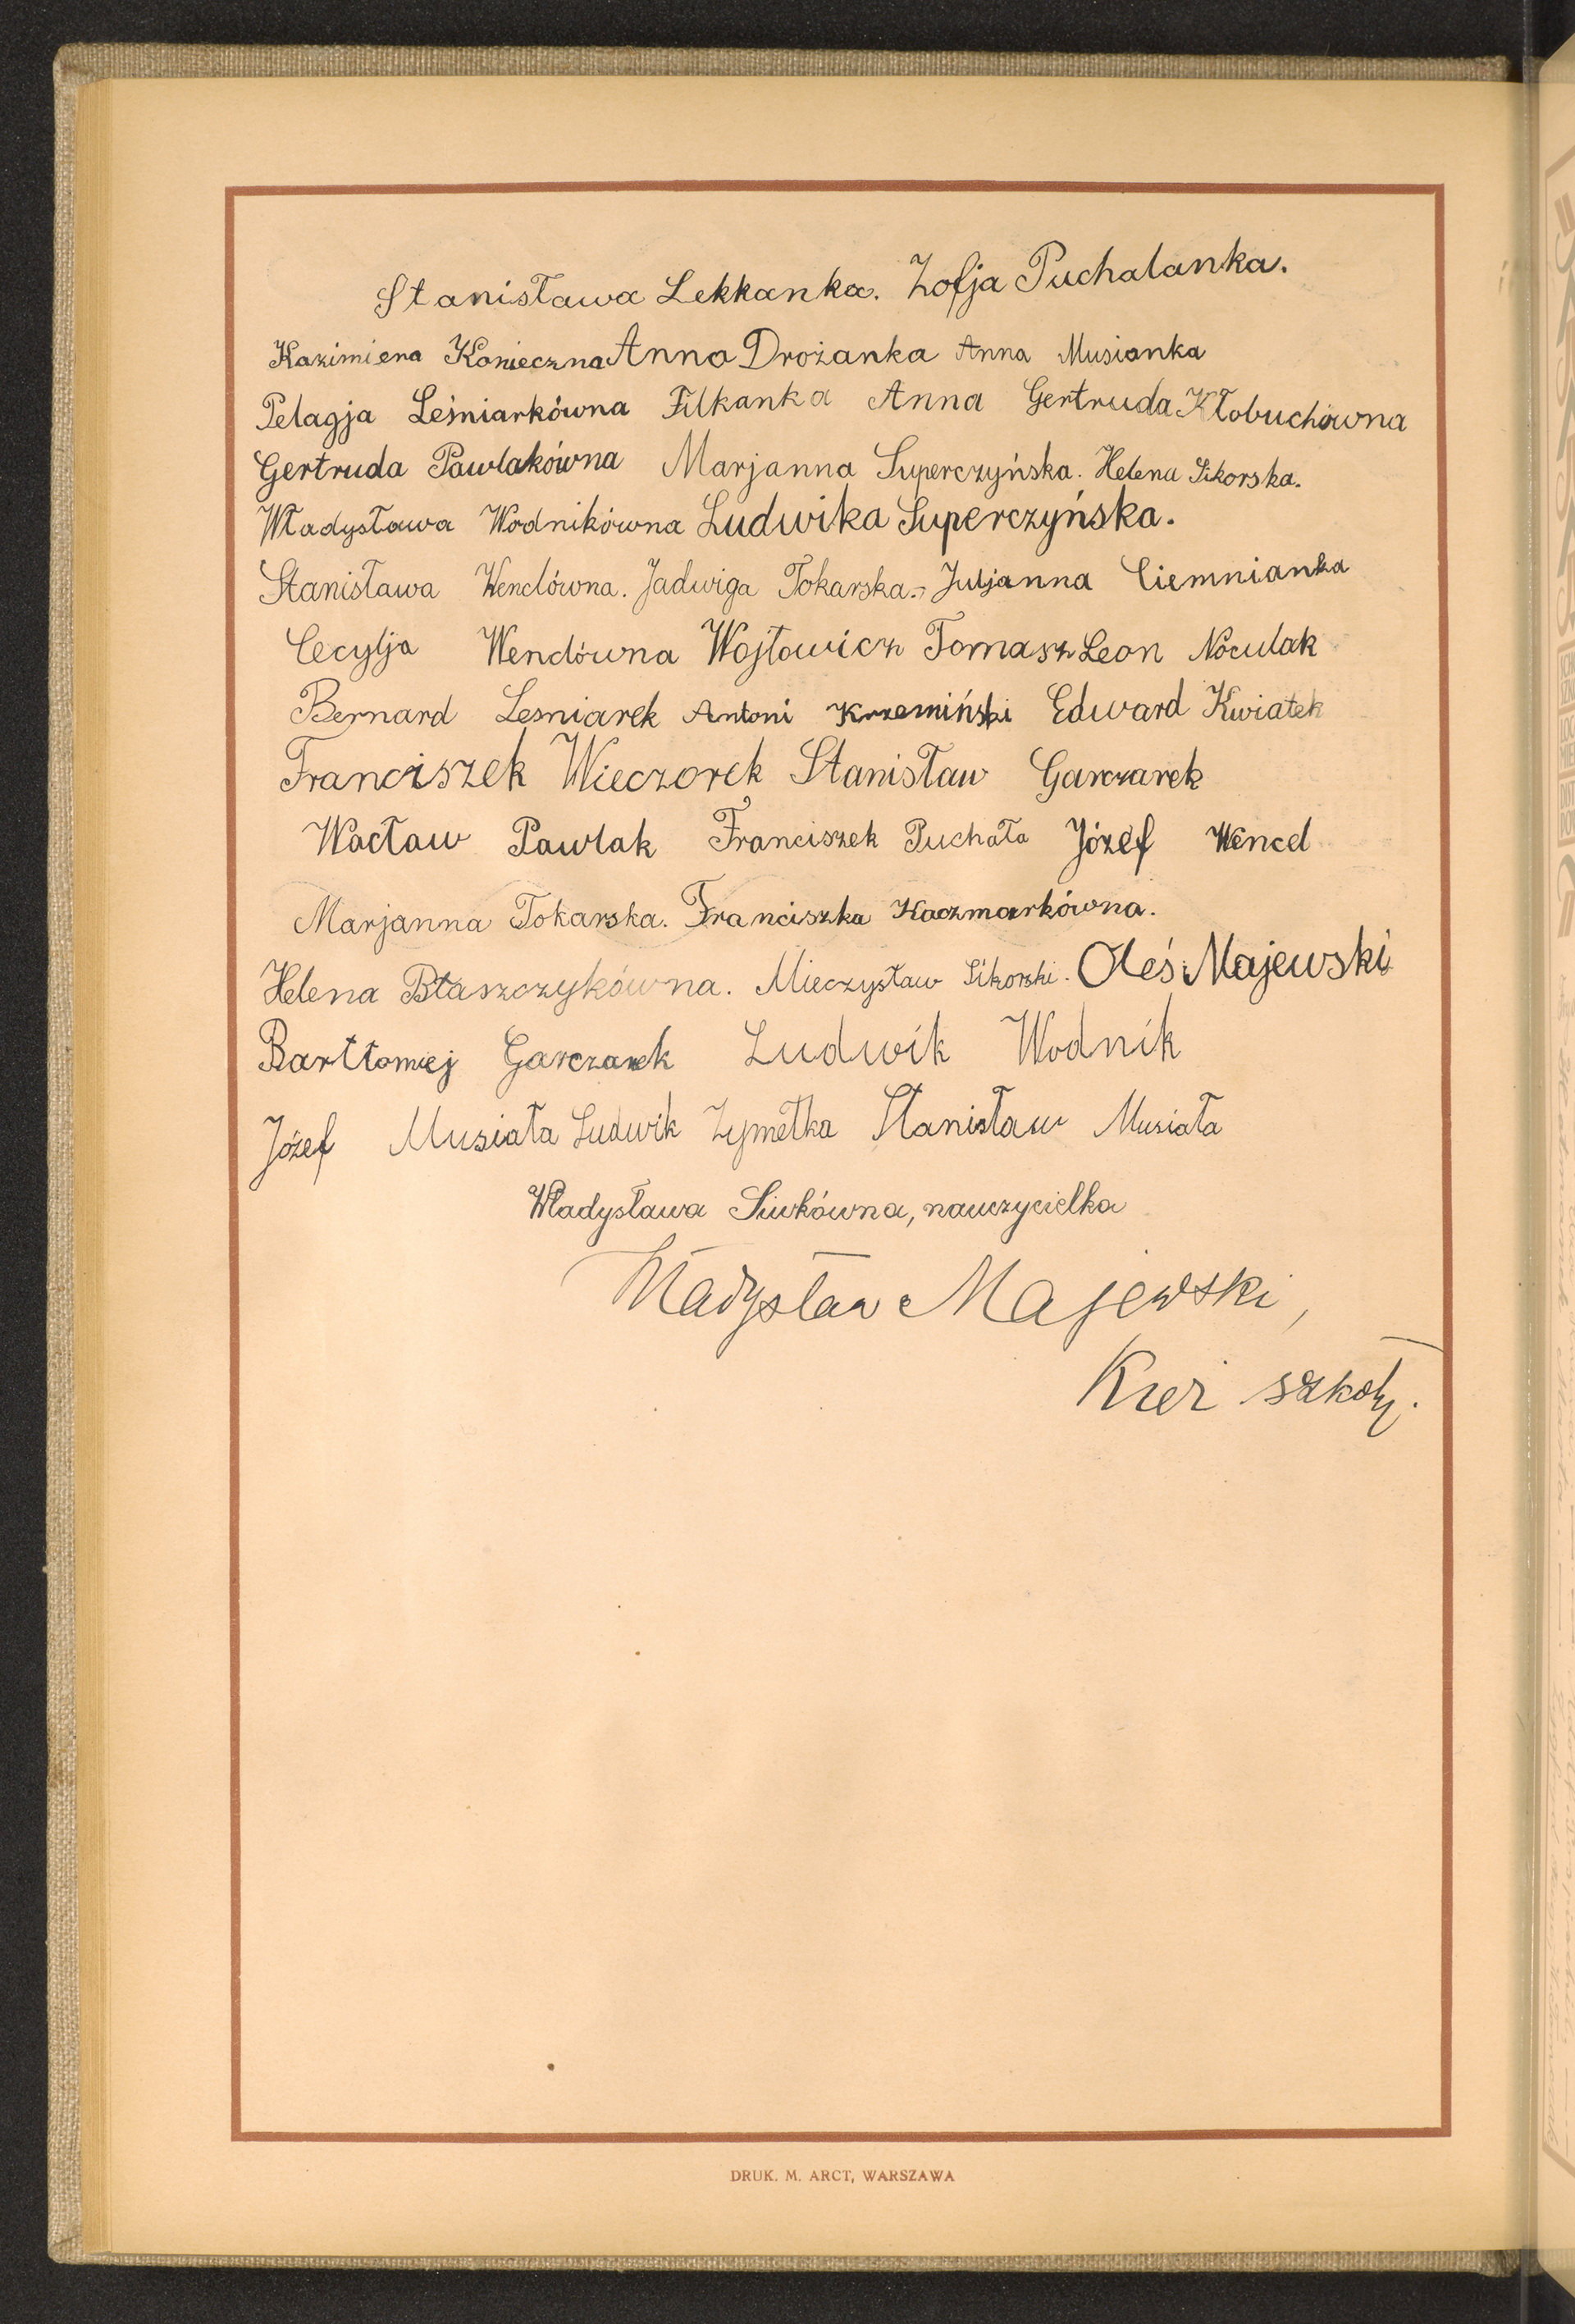 Stanisława Lekkanka. Zofja Puchalanka.
Kazimiera Konieczna Anna Drożanka Anna Musianka
Pelagja Leśniarkówna Filkanka Anna Gertruda Kłobuchówna
Gertruda Pawlakówna Marjanna Superczyńska. Helena Sikorska.
Władysława Wodnikówna Ludwika Superczyńska.
Stanisława Wendówna. Jadwiga Tokarska. Juljanna Ciemnianka
Cecylja Wendówna Wojtowicz Tomasz Leon Noculak
Bernard Lesniarek Antoni Krzemiński Edward Kwiatek
Franciszek Wieczorek Stanisław Garczarek
Wacław Pawlak Franciszek Puchała Józef Wencel
Marjanna Tokarska. Franciszka Kaczmarkówna.
Helena Błaszczykówna. Mieczysław Sikorski. Oleś Majewski
Bartłomiej Garczarek Ludwik Wodnik
Józef Musiała Ludwik Zymełka Stanisław Musiała
Władysława Siwkówna, nauczycielka
Władysław Majewski,
Kier szkoły.
DRUK. M. ARCT, WARSZAWA